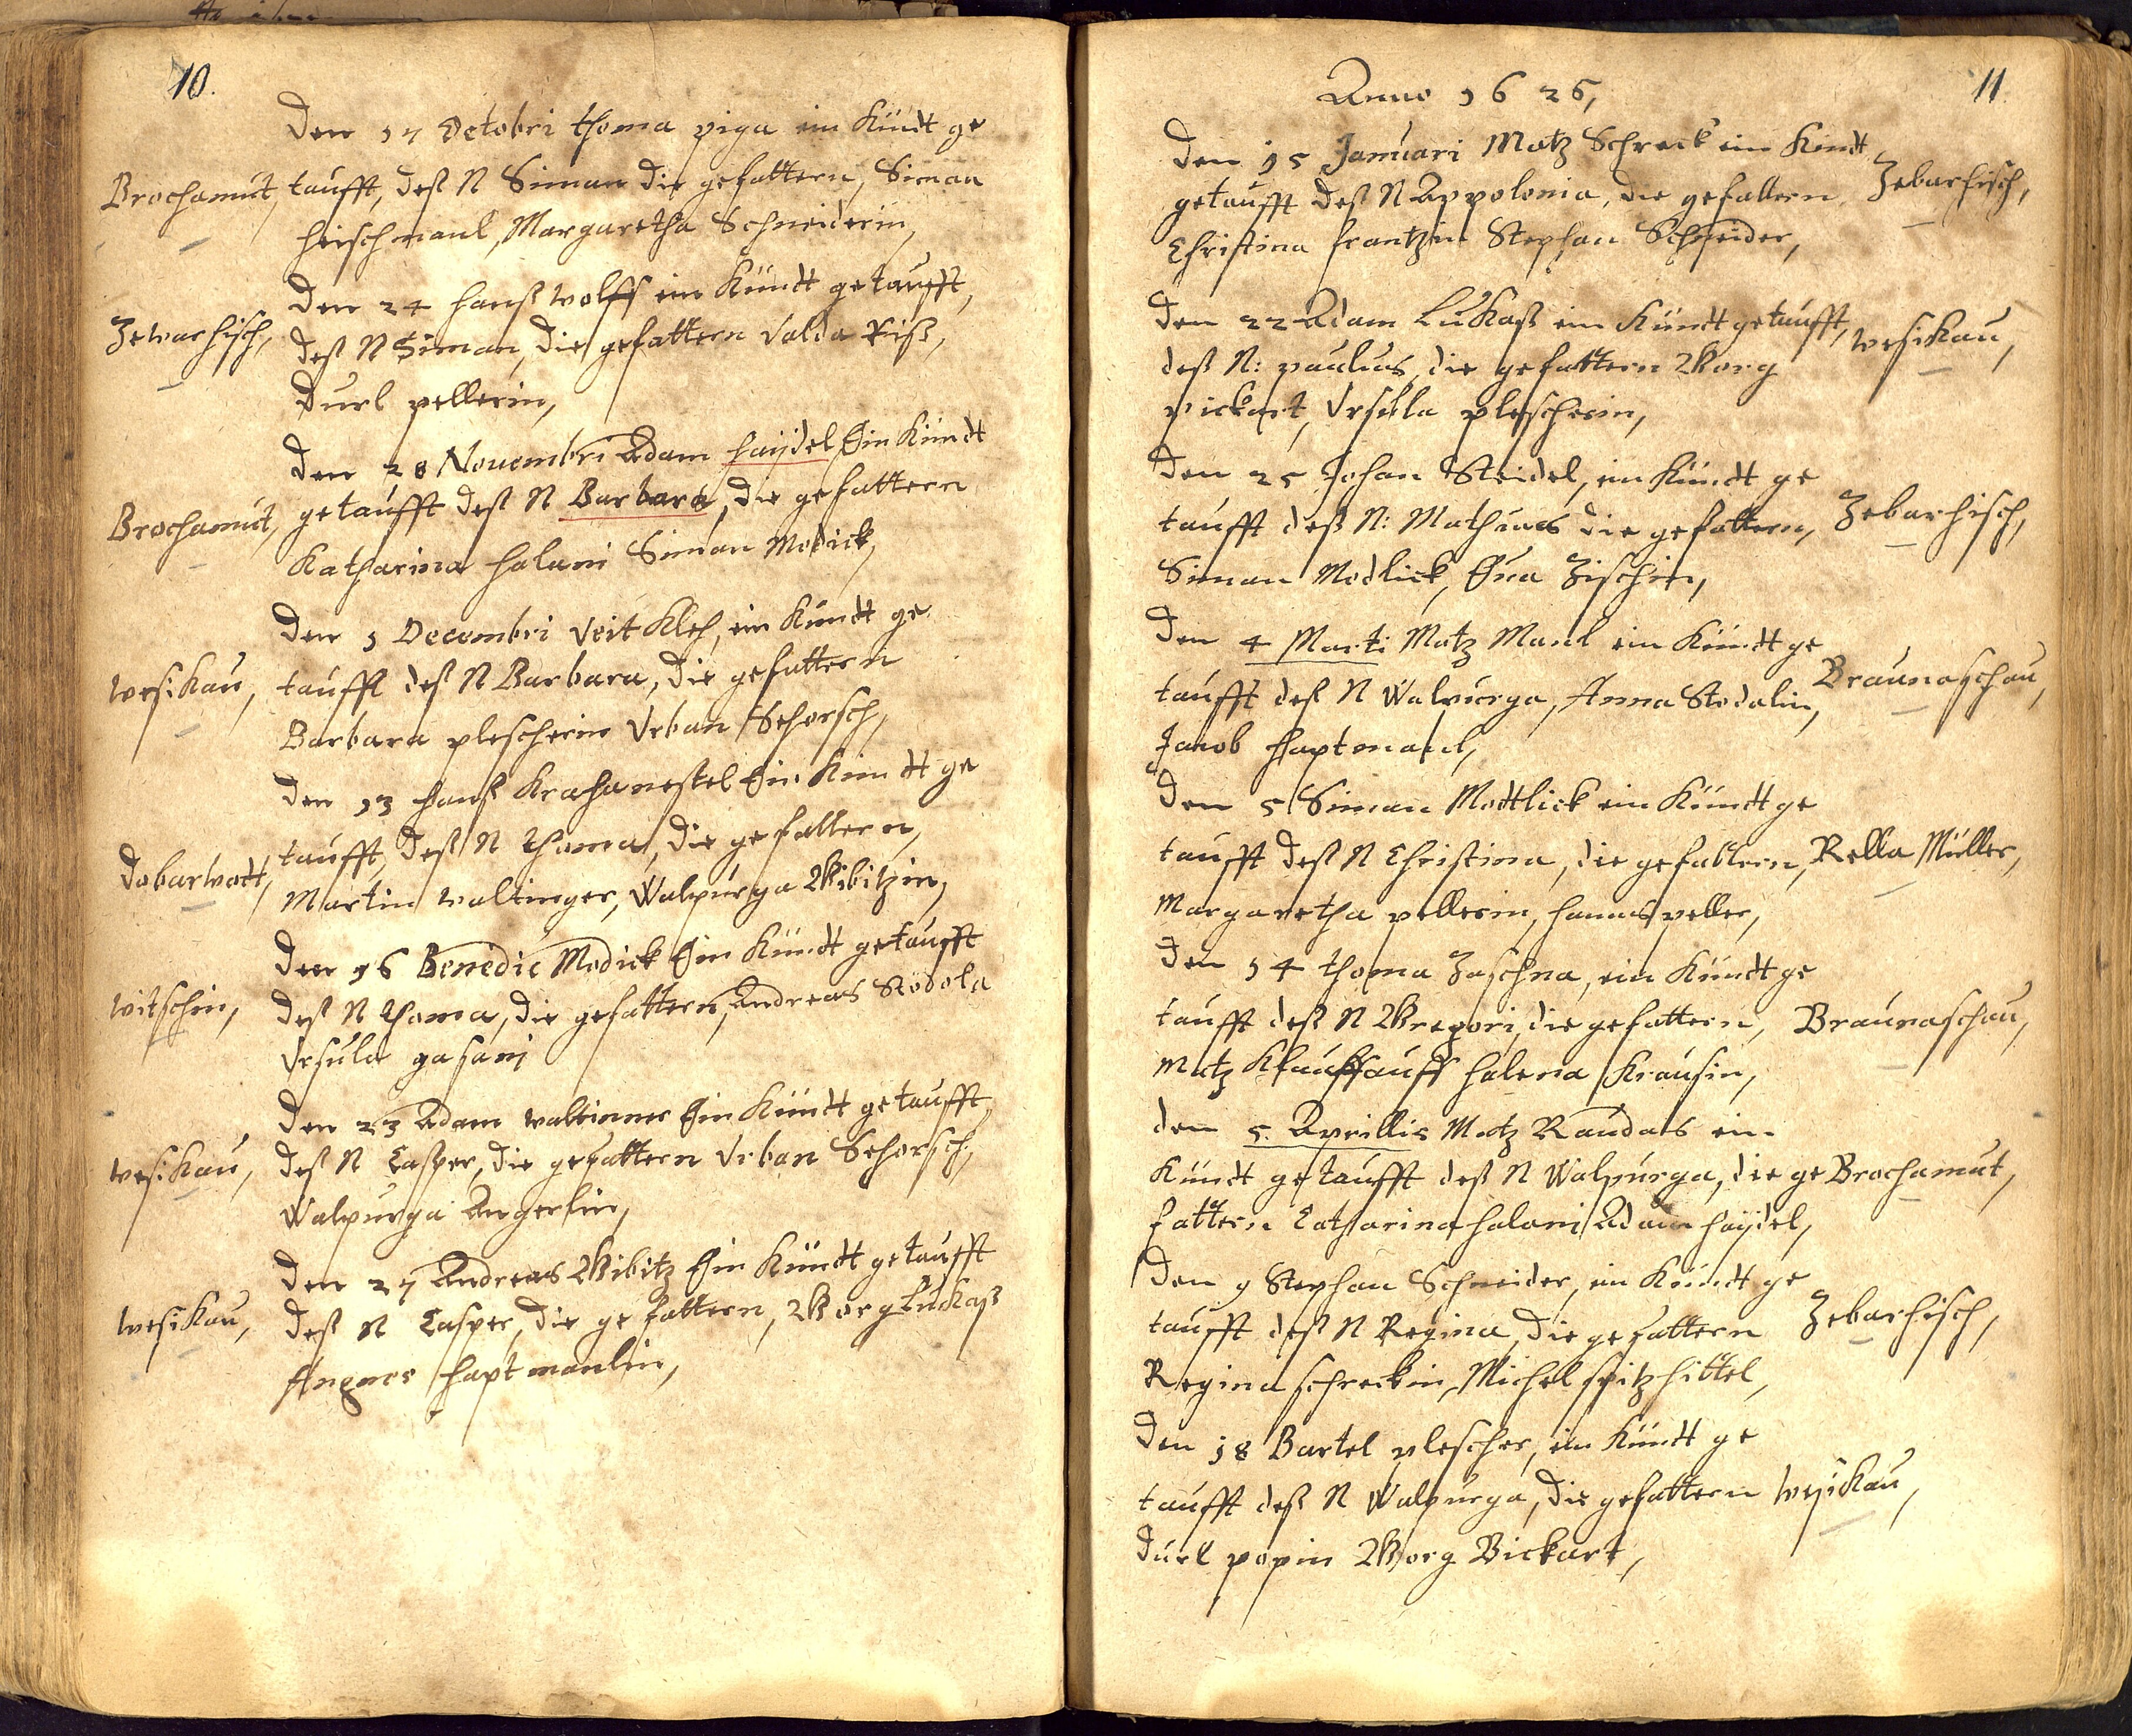 10.
Den 17 Octobri thoma piga ein Kündt ge
Brochamut, taufft, deß N Siman die gefattern, Siman
hirschmanl, Margaretha Schneiderin,
Den 24 hanß wolff ein Kündt getaufft,
Zewarhisch, deß N Siman, die gefattern Valda
Durl pellerin,
Den 28 Nouembri Adam haÿdel Ein Kündt
Brochamut, getaufft deß N Barbara, die gefattern
Katharina halani Siman Modick,
Den 1 Decembri Veit Kleh, ein Kündt ge
wesikau, taufft deß N Barbara, die gefattern
Barbara plescherin Vrban Schorsch,
Den 13 hanß Krahanestel Ein Kündt ge
Dobarwott, taufft, deß N thoma, die gefattern,
Martin waltinger, Walpurga Wibitzin,
Den 16 Benedic Modick Ein Kündt getaufft
witschin, deß N thoma, die gefattern, Andreas Stodola
Vrsula gasani
Den 23 Adam waltinner Ein Kündt getaufft,
wesikau, deß N Casper, die gefattern Vrban Schorsch,
Walpurga Angerlin,
Den 27 Andreas Wibitz Ein Kündt getaufft
wesikau, deß N Casper, die gefattern, Worg Luckaß
Angnes haptmanlin,
Anno 1626,
11
Den 15 Januari Matz Schreck ein Kindt
getaufft deß N Appolonia, die gefattern Zebarhisch,
Christina frantzin Stephan Schneider,
Den 22 Adam Lukaß ein Kündt getaufft, wesikau,
deß N: paulus, die gefattern Worg
pickart, Vrsula plescherin,
Den 25 Johan Steidel, ein Kündt ge
taufft deß N: Mathias die gefattern, Zebarhisch,
Siman Modlick, Eua Zischin,
Den 4 Marti Matz Manl ein Kündt ge
taufft deß N Walpurga, Anna Stodalin, Braunaschau,
Jacob haptmanl,
Den 5 Siman Modtlick ein Kündt ge
taufft deß N Christina, die gefattern, Rella Müller,
Margaretha pellerin, hannas peller,
Den 14 thoma Zaschna, ein Kündt ge
taufft deß N Wregori, die gefattern, Braunaschau,
Matz Klauffauff halena Krausin,
den 5. Aprillis Matz Raudas ein
Kündt getaufft deß N Walpurga, die ge Brochamut,
fattern Catharina halani Adam haÿdel,
Den 9 Stephan Schneider, ein Kündt ge
taufft deß N Regina, die gefattern Zebarhisch,
Regina schreckin, Michel spitzhittel,
Den 18 Bartel plescher, ein Kündt ge
taufft deß N Walpurga, die gefattern wesikau,
durl popin Worg Bickart,